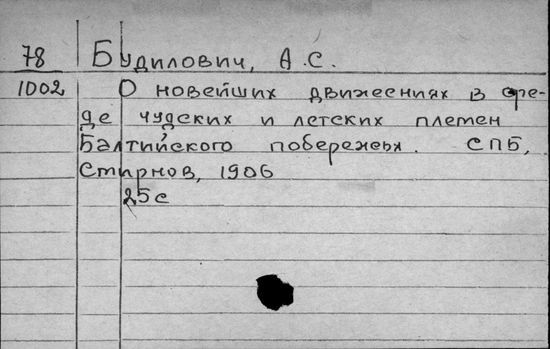 78 Будилович, А.С.
1002 О новейших движениях в сре-
де чудских и летских племен
Балтийского побережья. СПБ,
Стирнов, 1906
25с